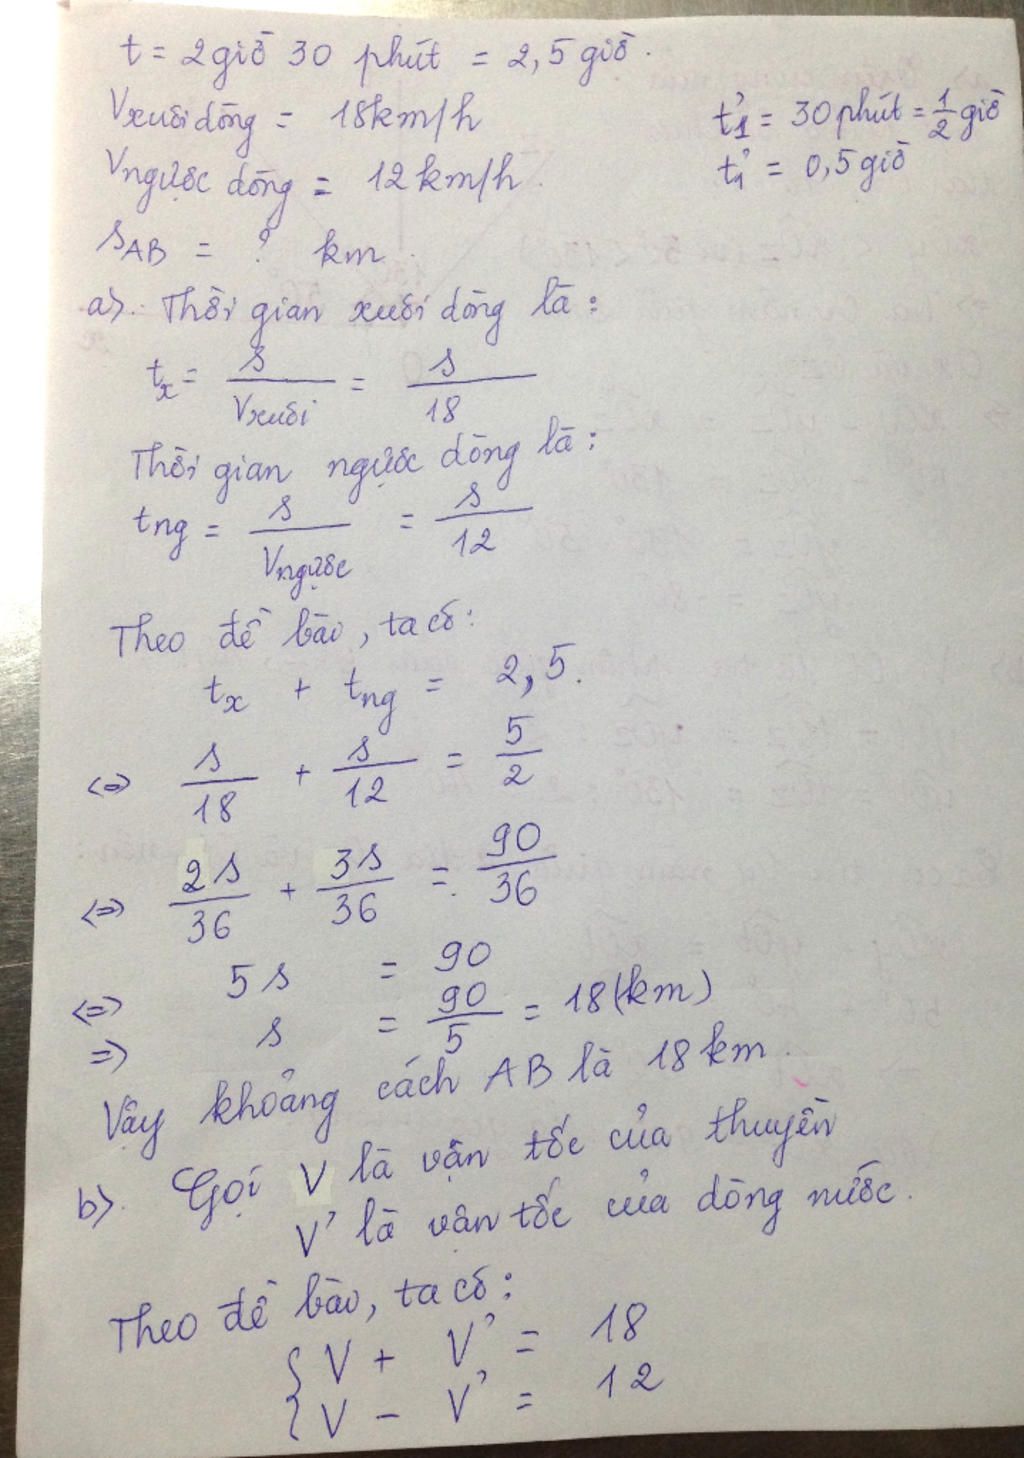 t = 2 giờ 30 phút = 2,5 giờ.
Vxuôi dòng = 18km/h
t'1 = 30 phút = 1/2 giờ
Vngược dòng = 12km/h.
t'1 = 0,5 giờ
sAB = ? km.
a). Thời gian xuôi dòng là:
tx = s/Vxuôi = s/18
Thời gian ngược dòng là:
tng = s/Vngược = s/12
Theo đề bài, ta có:
tx + tng = 2,5.
<=> s/18 + s/12 = 5/2
<=> 2s/36 + 3s/36 = 90/36
<=> 5s = 90
=> s = 90/5 = 18(km)
Vậy khoảng cách AB là 18km.
b). Gọi V là vận tốc của thuyền
V' là vận tốc của dòng nước.
Theo đề bài, ta có:
{ V + V' = 18
V - V' = 12